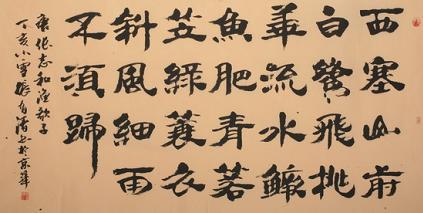 西塞山前
白鷺飛桃
華流水鱖
魚肥青箬
笠綠蓑衣
斜風細雨
不須歸
唐張志和漁歌子
丁亥小雪張有清书於京華